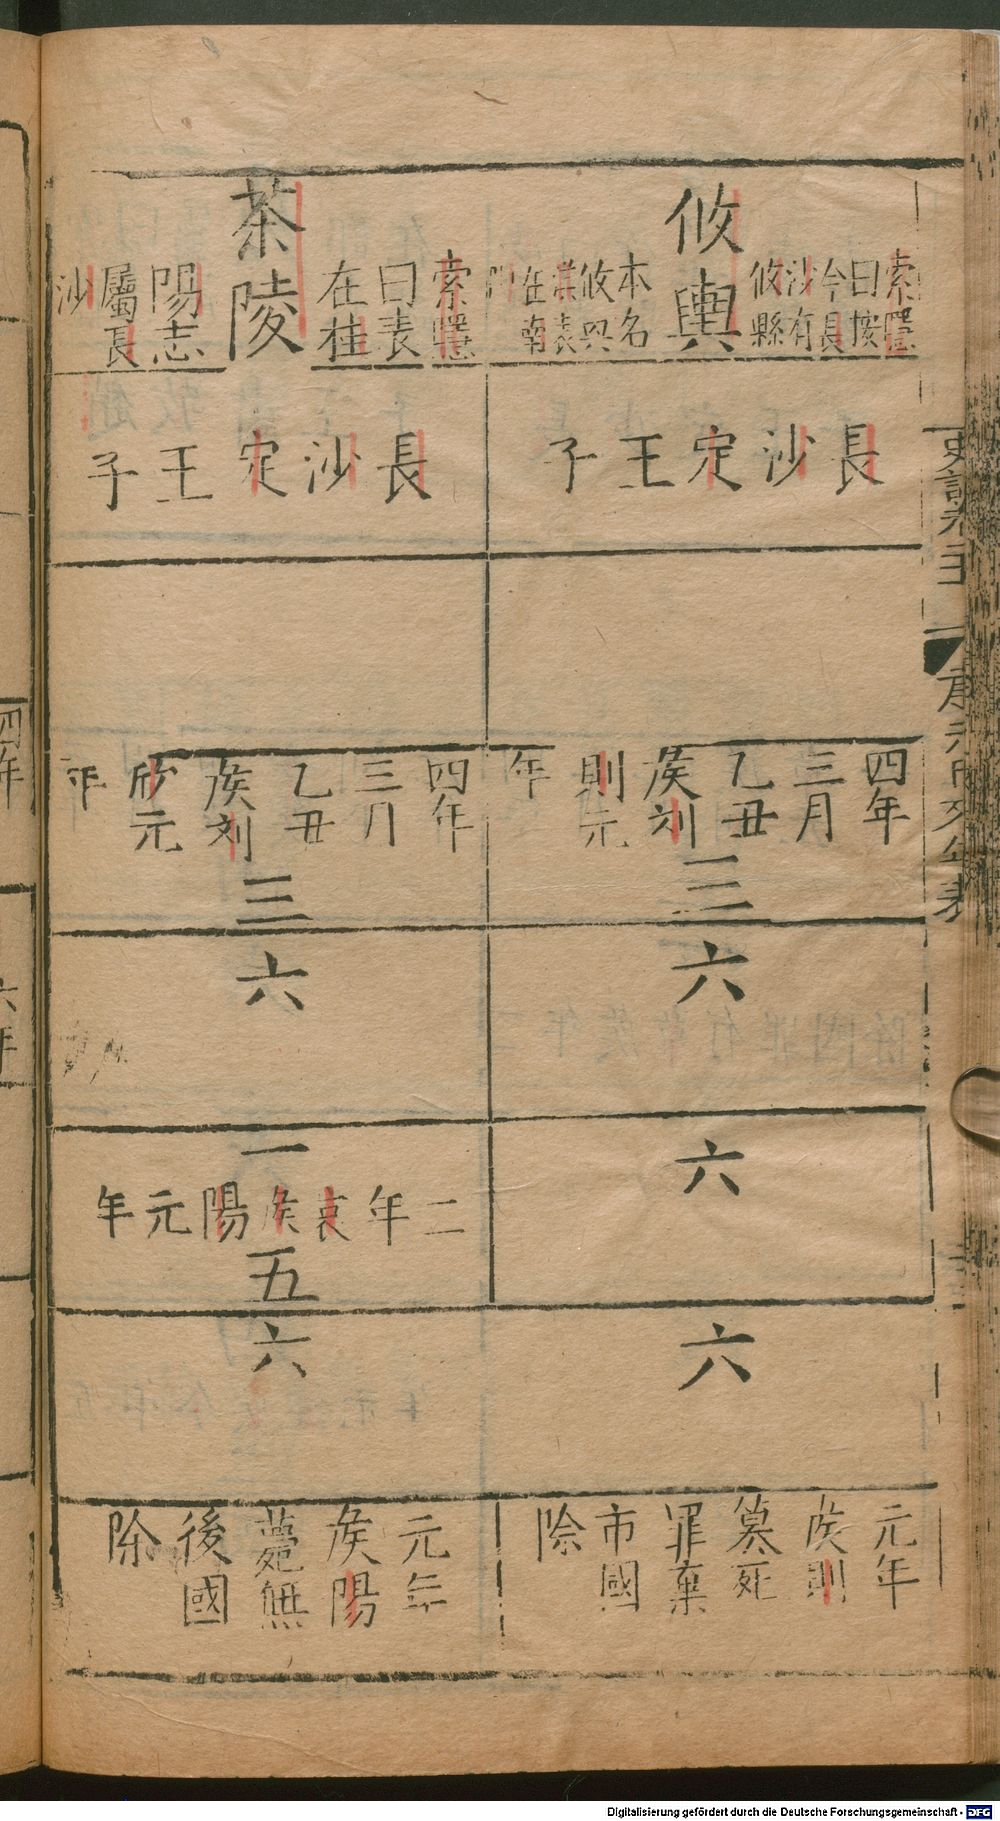 攸輿
索隱
曰按
今長
沙有
攸縣
本名
攸輿
漢表
在南
陽
長沙定王子
四年
三月
乙丑
侯刘
則元
年
三
六
六
六
元年
侯則
篡死
罪棄
市國
除
茶陵
索隱
曰表
在桂
陽志
屬長
沙
長沙定王子
四年
三月
乙丑
侯刘
欣元
年
三
六
一
二年哀侯陽元年
五
六
元年
侯陽
薨無
後國
除
四年
六年
Digitalisierung gefördert durch die Deutsche Forschungsgemeinschaft - DFG